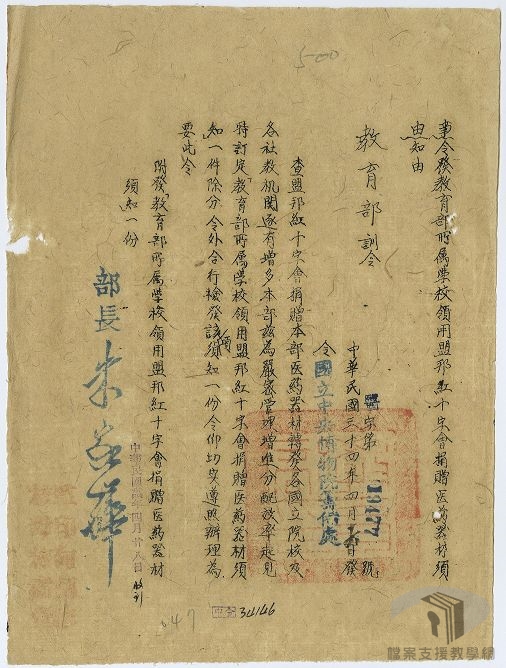 500
事由 令發教育部所屬學校領用盟邦紅十字會捐贈医葯器材須
知由
教育部訓令
字第19477號
中華民國三十四年四月 日發
令國立中央博物院籌備處
查盟邦紅十字會捐贈本部医葯器材轉發各國立院校及
各社教机関逐有增多本部茲為嚴密管理增進分配效率起見
特訂定「教育部所属學校領用盟邦紅十字會捐贈医葯器材須
知」一件除分令外合行檢發該項須知一份令仰切实遵照辦理為
要此令
附發「教育部所属學校領用盟邦紅十字會捐贈医葯器材
須知」一份
部長 朱家驊
中華民國 四月廿八日收到
34146
647
檔案支援教學網